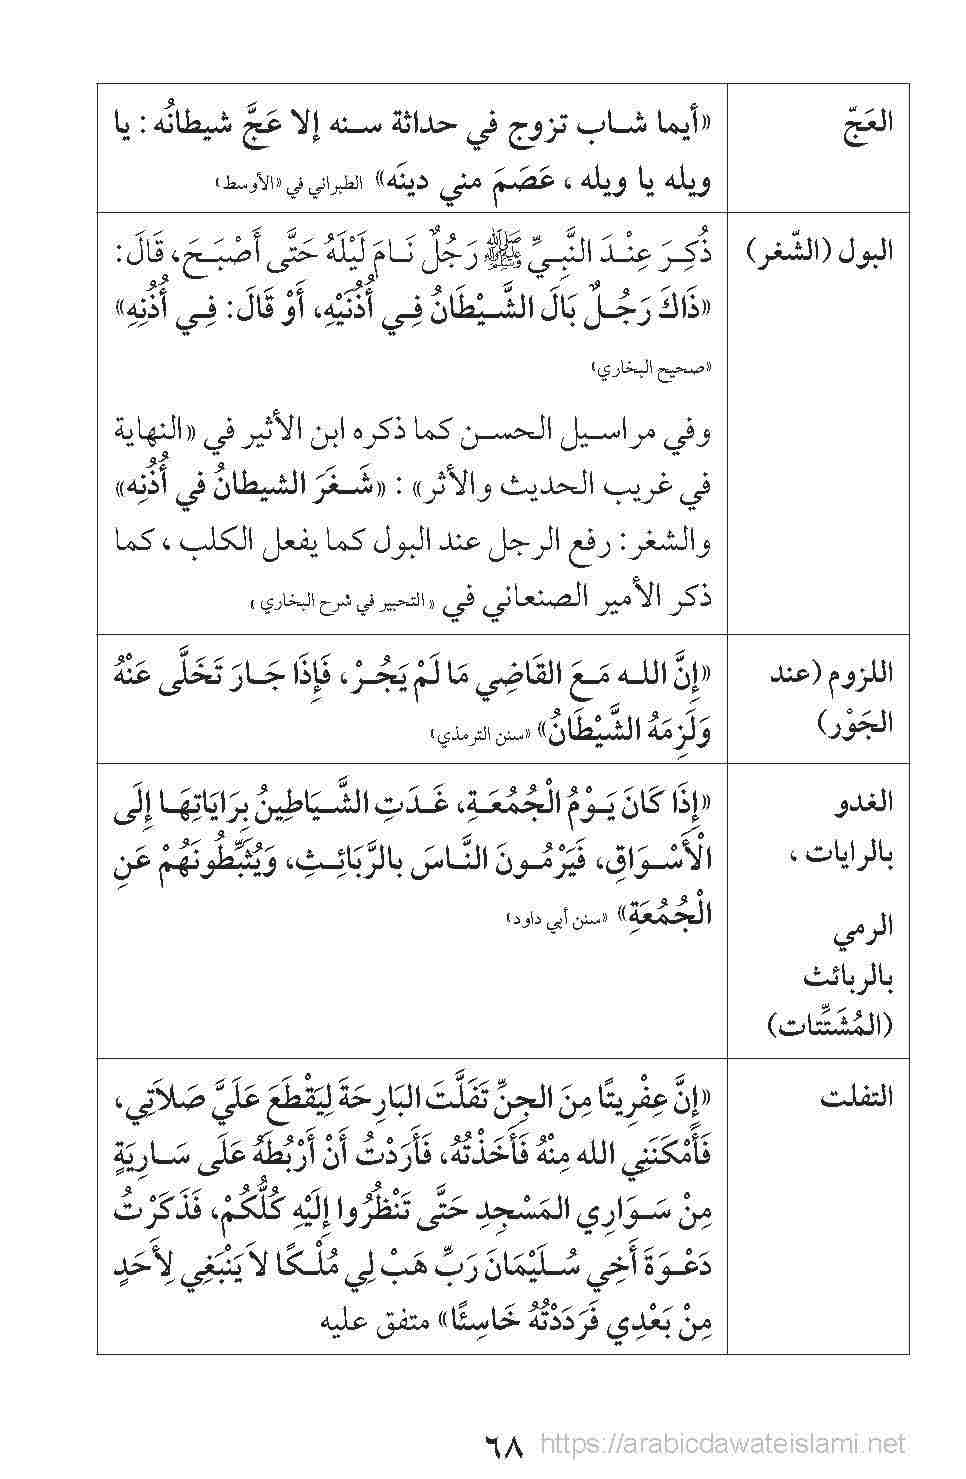 العَجّ
«أيما شاب تزوج في حداثة سنه إلا عَجَّ شيطانُه : يا
ويله يا ويله ، عَصَمَ مني دينَه» الطبراني في «الأوسط»
البول (الشّغر)
ذُكِرَ عِنْدَ النَّبِيِّ ﷺ رَجُلٌ نَامَ لَيْلَهُ حَتَّى أَصْبَحَ، قَالَ:
«ذَاكَ رَجُلٌ بَالَ الشَّيْطَانُ فِي أُذُنَيْهِ، أَوْ قَالَ: فِي أُذُنِهِ»
«صحيح البخاري»
وفي مراسيل الحسن كما ذكره ابن الأثير في «النهاية
في غريب الحديث والأثر» : «شَغَرَ الشيطانُ في أُذُنِه»
والشغر: رفع الرجل عند البول كما يفعل الكلب ، كما
ذكر الأمير الصنعاني في « التحبير في شرح البخاري »
اللزوم (عند
الجَوْر)
«إِنَّ الله مَعَ القَاضِي مَا لَمْ يَجُرْ، فَإِذَا جَارَ تَخَلَّى عَنْهُ
وَلَزِمَهُ الشَّيْطَانُ» «سنن الترمذي»
الغدو
بالرايات ،
الرمي
بالربائث
(المُشَتِّتات)
«إِذَا كَانَ يَوْمُ الْجُمُعَةِ، غَدَتِ الشَّيَاطِينُ بِرَايَاتِهَا إِلَى
الْأَسْوَاقِ، فَيَرْمُونَ النَّاسَ بالرَّبَائِثِ، وَيُثَبِّطُونَهُمْ عَنِ
الْجُمُعَةِ» «سنن أبي داود»
التفلت
«إِنَّ عِفْرِيتًا مِنَ الجِنِّ تَفَلَّتَ البَارِحَةَ لِيَقْطَعَ عَلَيَّ صَلاَتِي،
فَأَمْكَنَنِي الله مِنْهُ فَأَخَذْتُهُ، فَأَرَدْتُ أَنْ أَرْبُطَهُ عَلَى سَارِيَةٍ
مِنْ سَوَارِي المَسْجِدِ حَتَّى تَنْظُرُوا إِلَيْهِ كُلُّكُمْ، فَذَكَرْتُ
دَعْوَةَ أَخِي سُلَيْمَانَ رَبِّ هَبْ لِي مُلْكًا لاَ يَنْبَغِي لِأَحَدٍ
مِنْ بَعْدِي فَرَدَدْتُهُ خَاسِئًا» متفق عليه
٦٨ https://arabicdawateislami.net